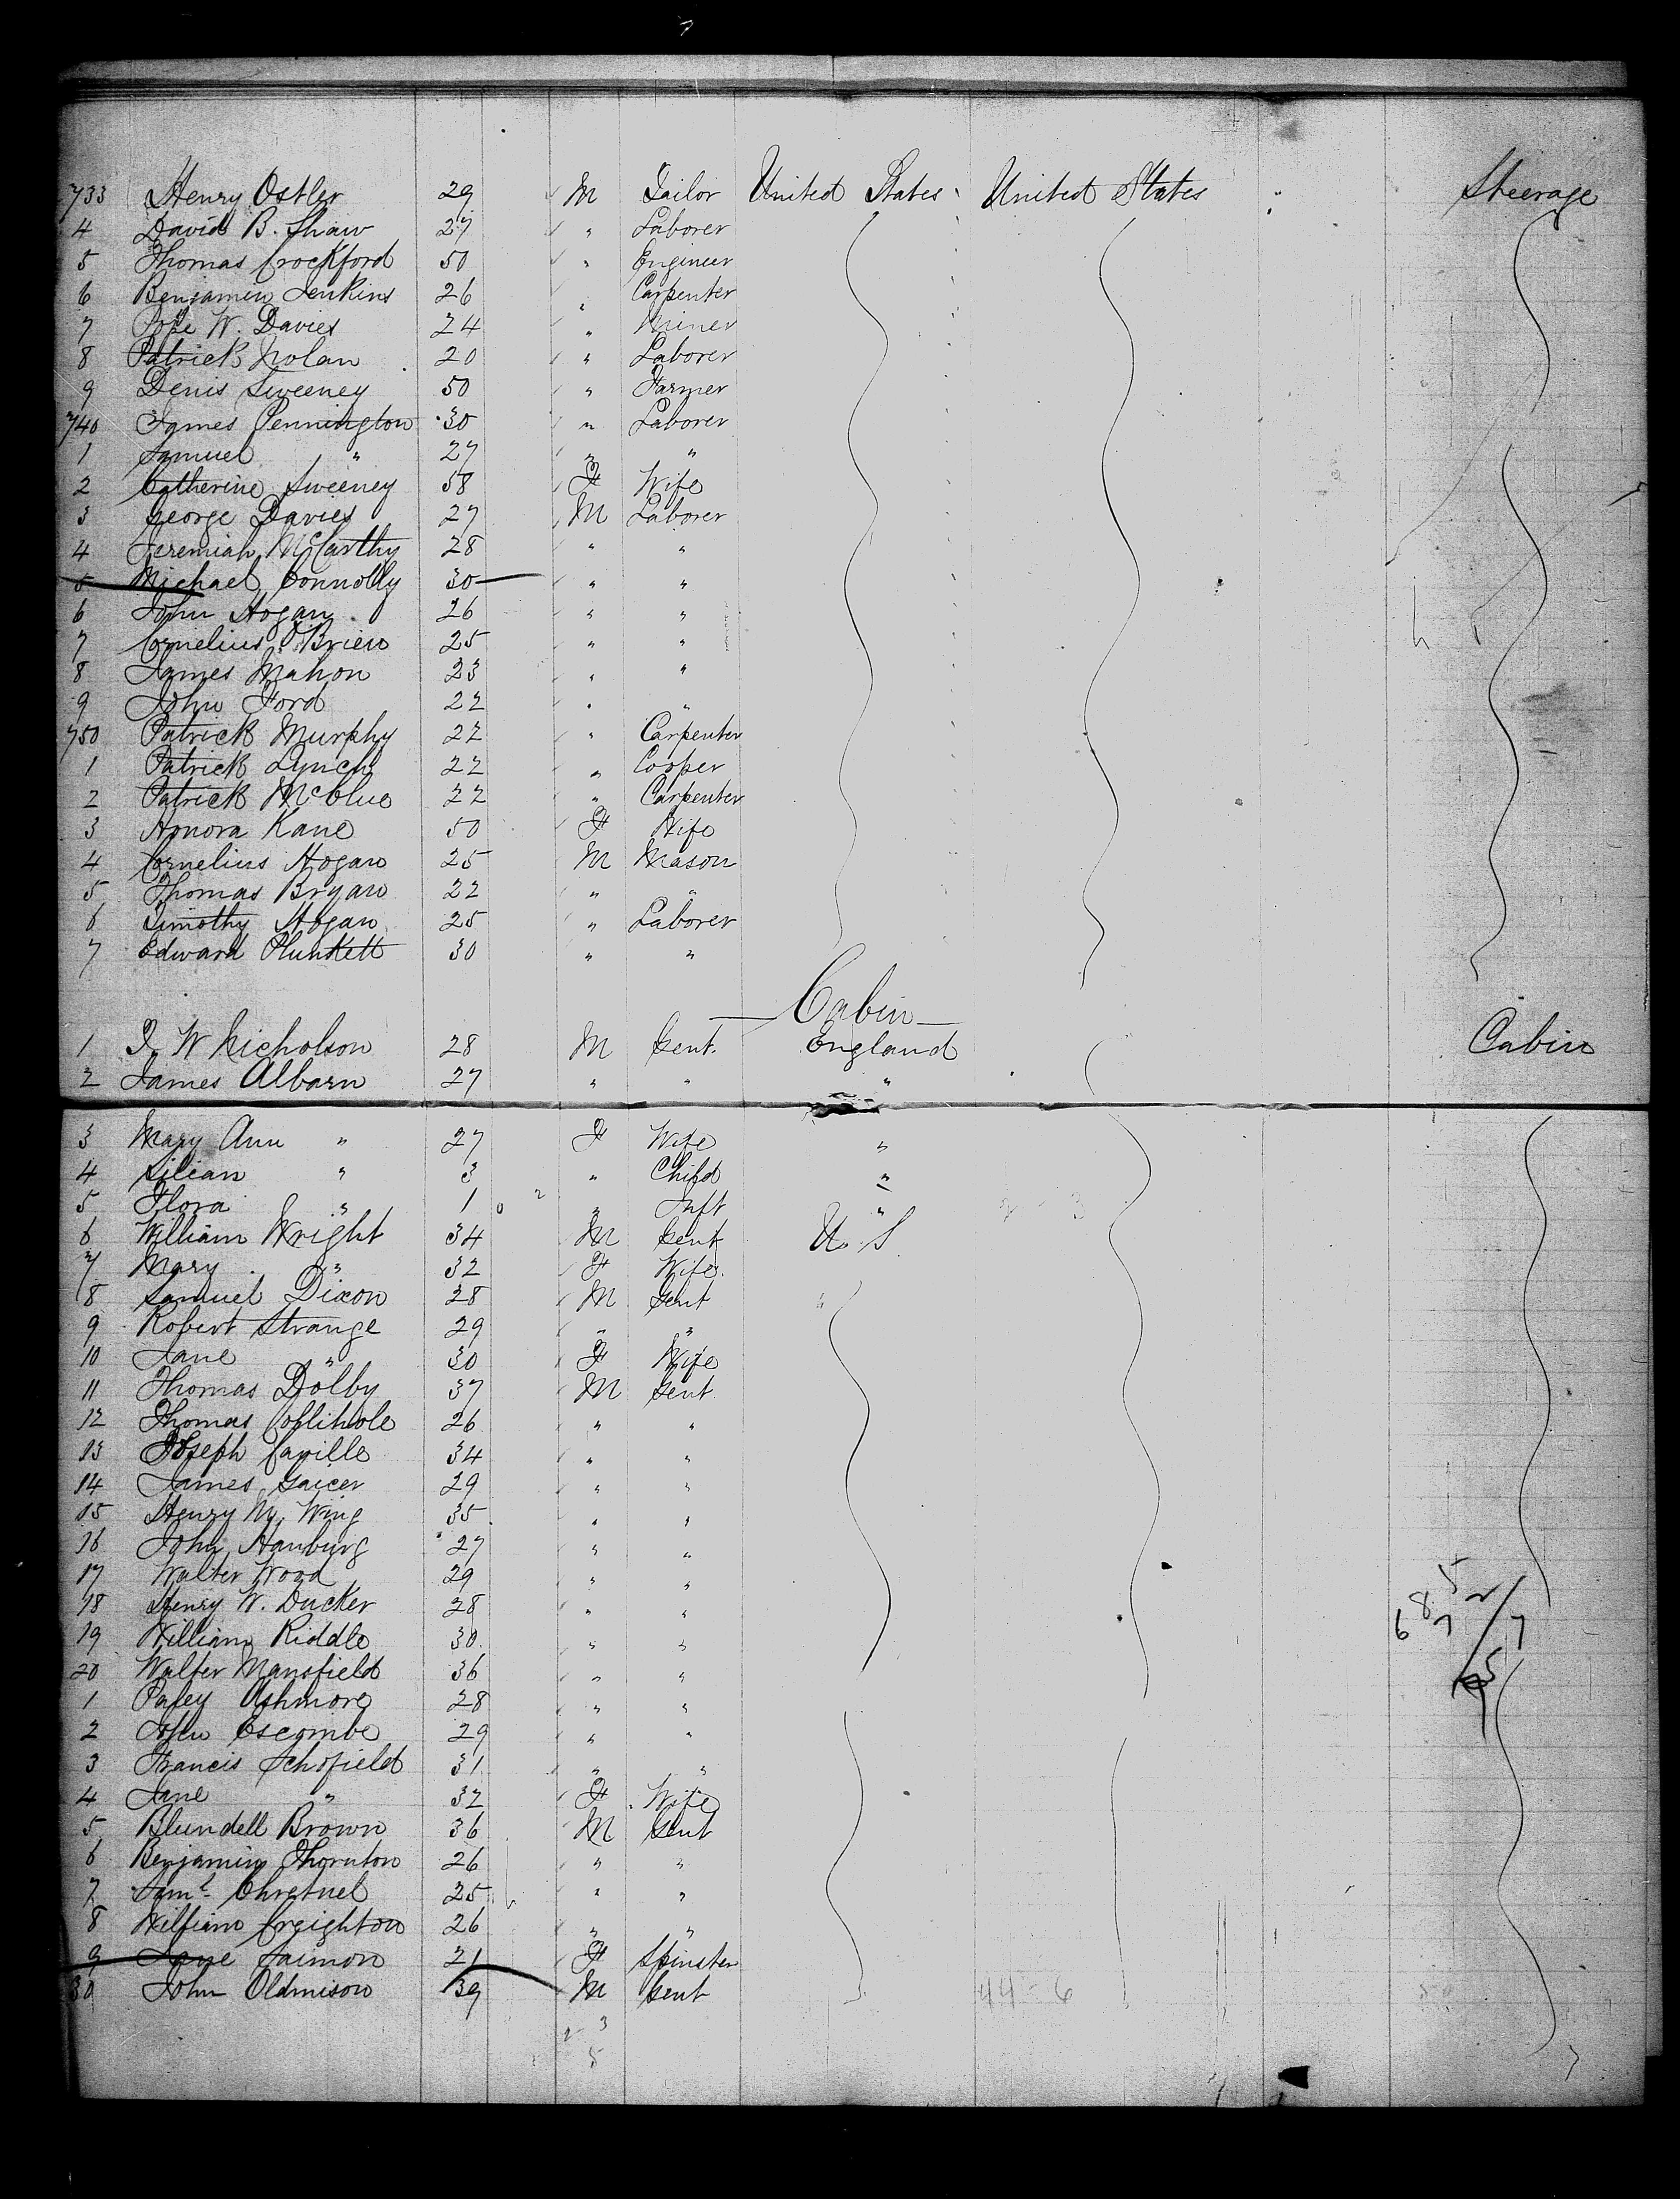 733 Henry Ostler 29 M Tailor United States United States Steerage
4 David B. Shaw 27 " Laborer
5 Thomas Crockford 50 " Engineer
6 Benjamin Jenkins 26 " Carpenter
7 W. Davies 24 " Miner
8 Patrick Nolan 20 " Laborer
9 Denis Sweeney 50 " Farmer
740 James Pennington 30 " Laborer
1 Samuel " 27 " "
2 Catherine Sweeney 58 F Wife
3 George Davies 27 M Laborer
4 Jeremiah McCarthy 28 " "
5 Michael Connolly 30 " "
6 John Hogan 26 " "
7 Cornelius O'Brien 25 " "
8 James Mahon 23 " "
9 John Ford 22 " "
750 Patrick Murphy 22 " Carpenter
1 Patrick Lynch 22 " Cooper
2 Patrick McClue 22 " Carpenter
3 Honora Kane 50 F Wife
4 Cornelius Hogan 25 M Mason
5 Thomas Bryan 22 " "
6 Timothy Hogan 25 " Laborer
7 Edward Plunkett 30 " "
Cabin
1 W Nicholson 28 M Gent. England Cabin
2 James Albarn 27 " " "
3 Mary Ann " 27 F Wife "
4 Lilian " 3 " Child "
5 Flora " 1 " Inft "
6 William Wright 34 M Gent U. S
7 Mary " 32 F Wife
8 Samuel Dixon 28 M Gent "
9 Robert Strange 29 " "
10 Jane " 30 F Wife
11 Thomas Dolby 37 M Gent
12 Thomas 26 " "
13 Joseph Caville 34 " "
14 James Gaicer 29 " "
15 Henry M. Wing 35 " "
16 John Hanburg 27 " "
17 Walter Wood 29 " "
18 Henry W. Ducker 28 " "
19 William Riddle 30 " "
20 Walter Mansfield 36 " "
1 Paley Ashmore 28 " "
2 John Escombe 29 " "
3 Francis Schofield 31 " "
4 Jane " 32 F Wife
5 Blundell Brown 36 M Gent
6 Benjamin Thornton 26 " "
7 Saml. 25 " "
8 William Creighton 26 " "
9 Jane Saimon 21 F Spinster
30 John Oldmison 39 M Gent
44-6